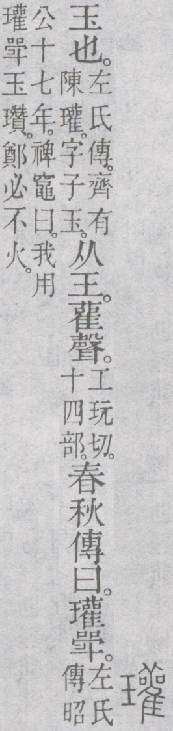 瓘
玉也。左氏傳。齊有陳瓘。字子玉。从王。雚聲。工玩切。十四部。春秋傳曰。瓘斝。左氏傳昭
公十七年。裨竈曰。我用
瓘斝玉瓚。鄭必不火。